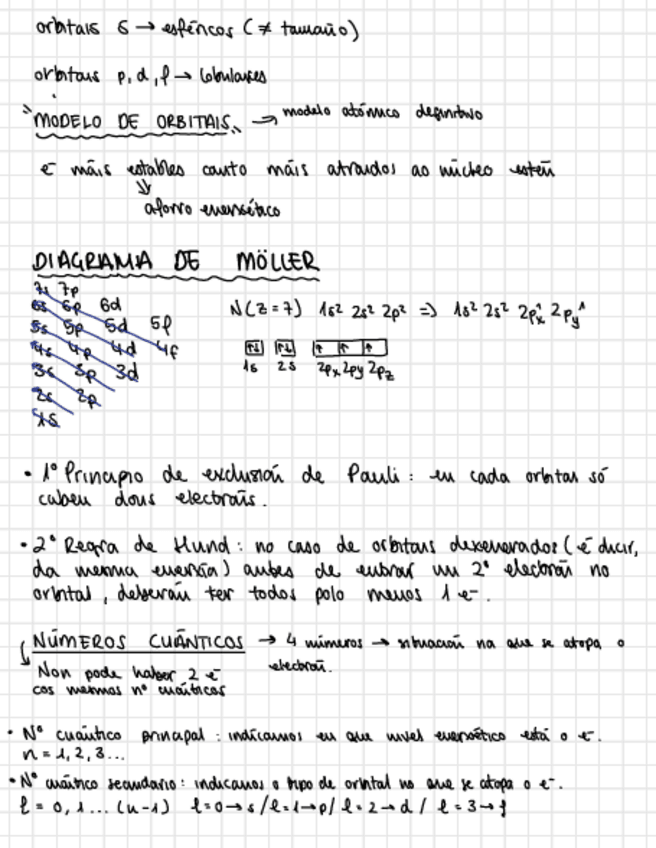 orbitais s → esféricos (≠ tamaño)
orbitais p, d, f → lobulares
"MODELO DE ORBITAIS" → modelo atómico definitivo
e⁻ máis estables canto máis atraidos ao núcleo estén
⇓
aforro enerxético
DIAGRAMA DE MÖLLER
7s 7p
6s 6p 6d
5s 5p 5d 5f
4s 4p 4d 4f
3s 3p 3d
2s 2p
1s
N (Z = 7) 1s² 2s² 2p² => 1s² 2s² 2px¹ 2py¹
↑↓ ↑↓ ↑ ↑ ↑
1s 2s 2px 2py 2pz
• 1º Principio de exclusión de Pauli: en cada orbital só
caben dous electróns.
• 2º Regra de Hund: no caso de orbitais dexenerados (é dicir,
da mesma enerxía) antes de entrar un 2º electrón no
orbital, deberán ter todos polo menos 1 e⁻.
NÚMEROS CUÁNTICOS → 4 números → situación na que se atopa o
electrón.
Non pode haber 2 e⁻
cos mesmos nº cuánticos
• Nº cuántico principal: indícanos en que nivel enerxético está o e⁻.
n = 1, 2, 3...
• Nº cuántico secundario: indícanos o tipo de orbital no que se atopa o e⁻.
l = 0, 1... (n-1) l=0→s / l=1→p / l=2→d / l=3→f